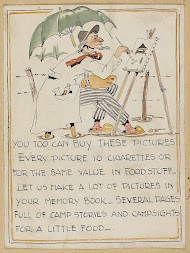 YOU TOO CAN BUY THESE PICTURES
EVERY PICTURE 10 CIGARETTES OR
FOR THE SAME VALUE IN FOODSTUFF.
LET US MAKE A LOT OF PICTURES IN
YOUR MEMORY BOOK_ SEVERAL PAGES
FULL OF CAMP STORIES AND CAMPSIGHTS
FOR A LITTLE FOOD_